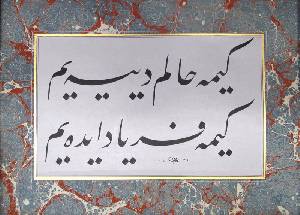 كیمه حالم دییه یم
كیمه فریاد ایده یم